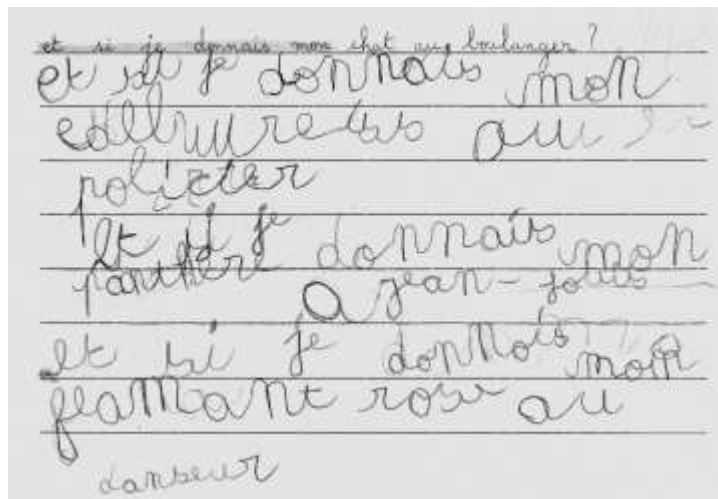 et si je donnais mon chat au boulanger ?
et si je donnais mon
au
policier
Et si je donnais mon
panthère
a jean-
et si je donnois mon
flamant rose au
danseur